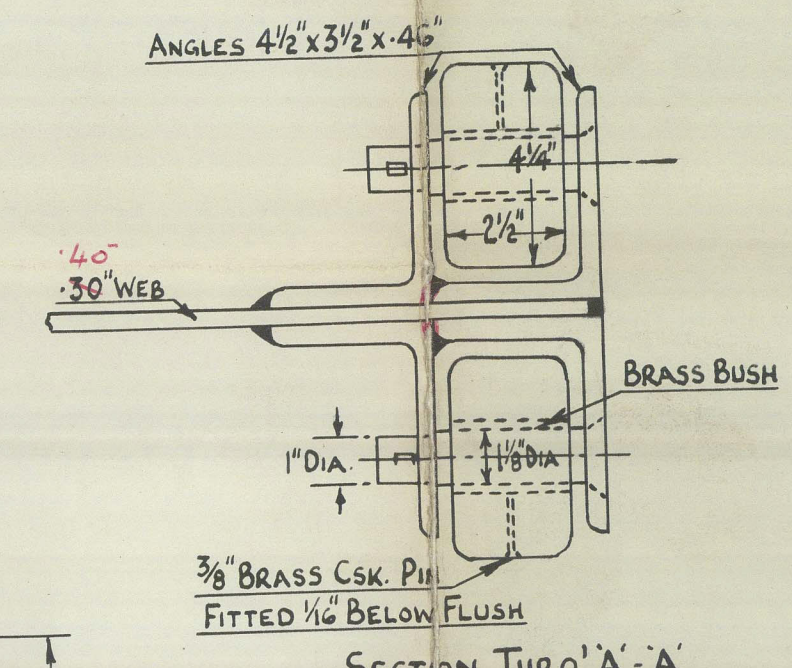 ANGLES 4½" x 3½" x .46"
4¼"
2½"
.40"
.30" WEB
BRASS BUSH
1" DIA.
1⅛" DIA
⅜" BRASS CSK. PIN
FITTED 1/16" BELOW FLUSH
SECTION THRO' 'A'-'A'